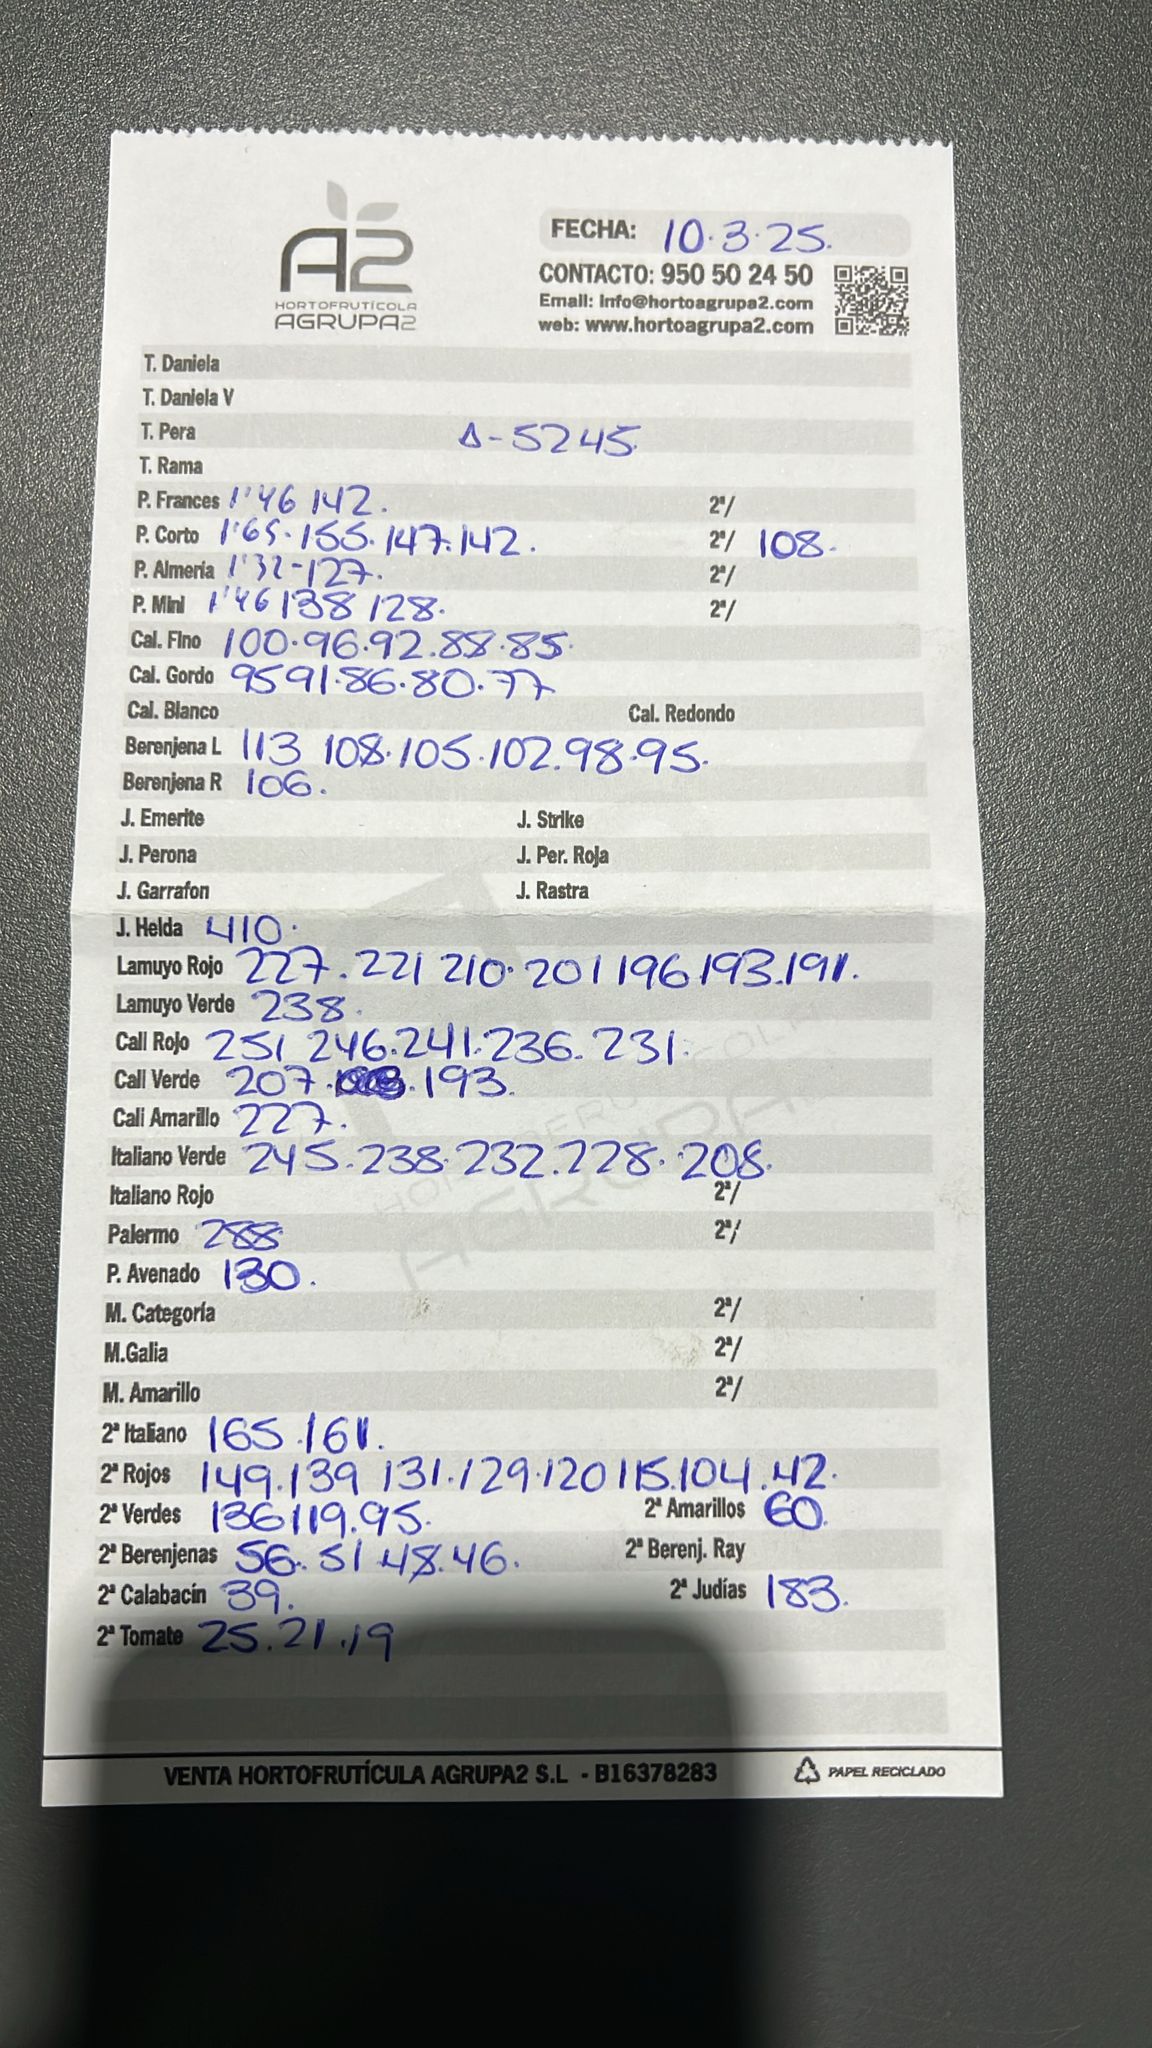 A2
HORTOFRUTÍCOLA
AGRUPA2
FECHA: 10.3.25.
CONTACTO: 950 50 24 50
Email: Info@hortoagrupa2.com
web: www.hortoagrupa2.com
T. Daniela
T. Daniela V
T. Pera Δ-5245.
T. Rama
P. Frances 1'46 142. 2ª/
P. Corto 1'65.155.147.142. 2ª/ 108.
P. Almería 1'32-127. 2ª/
P. Mini 1'46 138 128. 2ª/
Cal. Fino 100.96.92.88.85.
Cal. Gordo 95 91.86.80.77
Cal. Blanco Cal. Redondo
Berenjena L 113 108.105.102.98.95.
Berenjena R 106.
J. Emerite J. Strike
J. Perona J. Per. Roja
J. Garrafon J. Rastra
J. Helda 410.
Lamuyo Rojo 227.221 210.201 196 193.191.
Lamuyo Verde 238.
Cali Rojo 251 246.241.236.231.
Cali Verde 207. .193.
Cali Amarillo 227.
Italiano Verde 245.238.232.228.208.
Italiano Rojo 2ª/
Palermo 288 2ª/
P. Avenado 130.
M. Categoría 2ª/
M.Galia 2ª/
M. Amarillo 2ª/
2ª Italiano 165.161.
2ª Rojos 149.139 131.129.120 115.104.42.
2ª Verdes 136 119.95. 2ª Amarillos 60.
2ª Berenjenas 56.51 48.46. 2ª Berenj. Ray
2ª Calabacín 39. 2ª Judías 183.
2ª Tomate 25.21.19
VENTA HORTOFRUTÍCULA AGRUPA2 S.L - B16378283 PAPEL RECICLADO